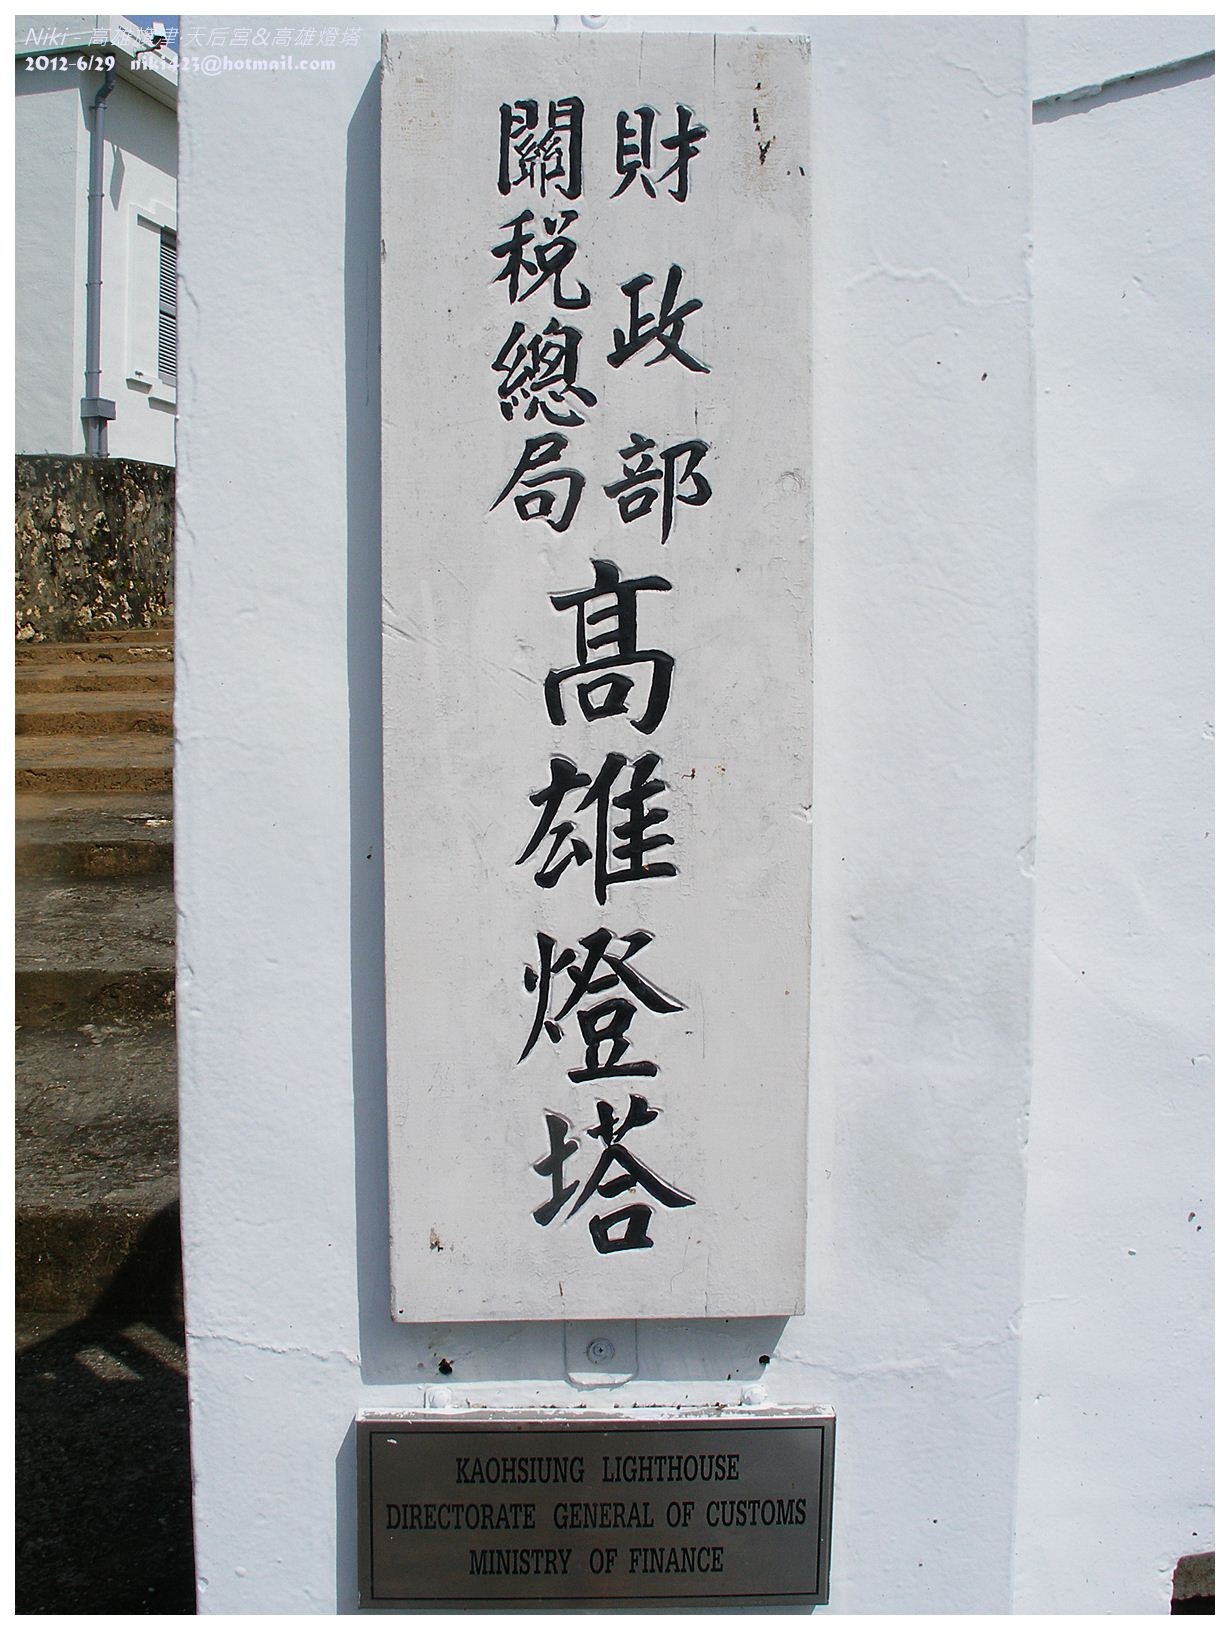 Niki - 高雄旗津‧天后宮&高雄燈塔
2012-6/29 niki423@hotmail.com
財政部
關稅總局
高雄燈塔
KAOHSIUNG LIGHTHOUSE
DIRECTORATE GENERAL OF CUSTOMS
MINISTRY OF FINANCE